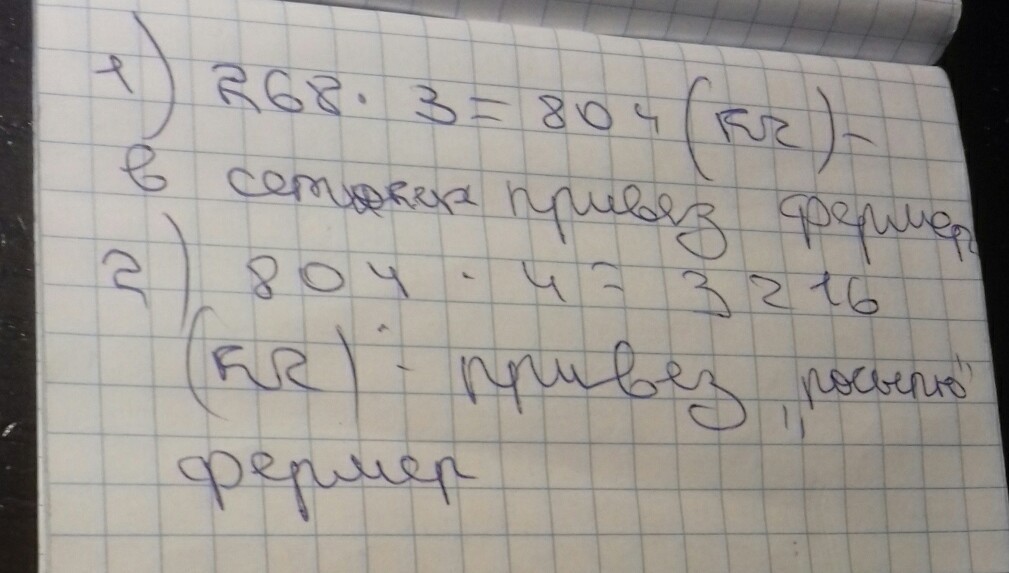 1) 268 · 3 = 804 (кг) -
в сетках привез фермер
2) 804 · 4 = 3216
(кг) - привез „россыпю"
фермер